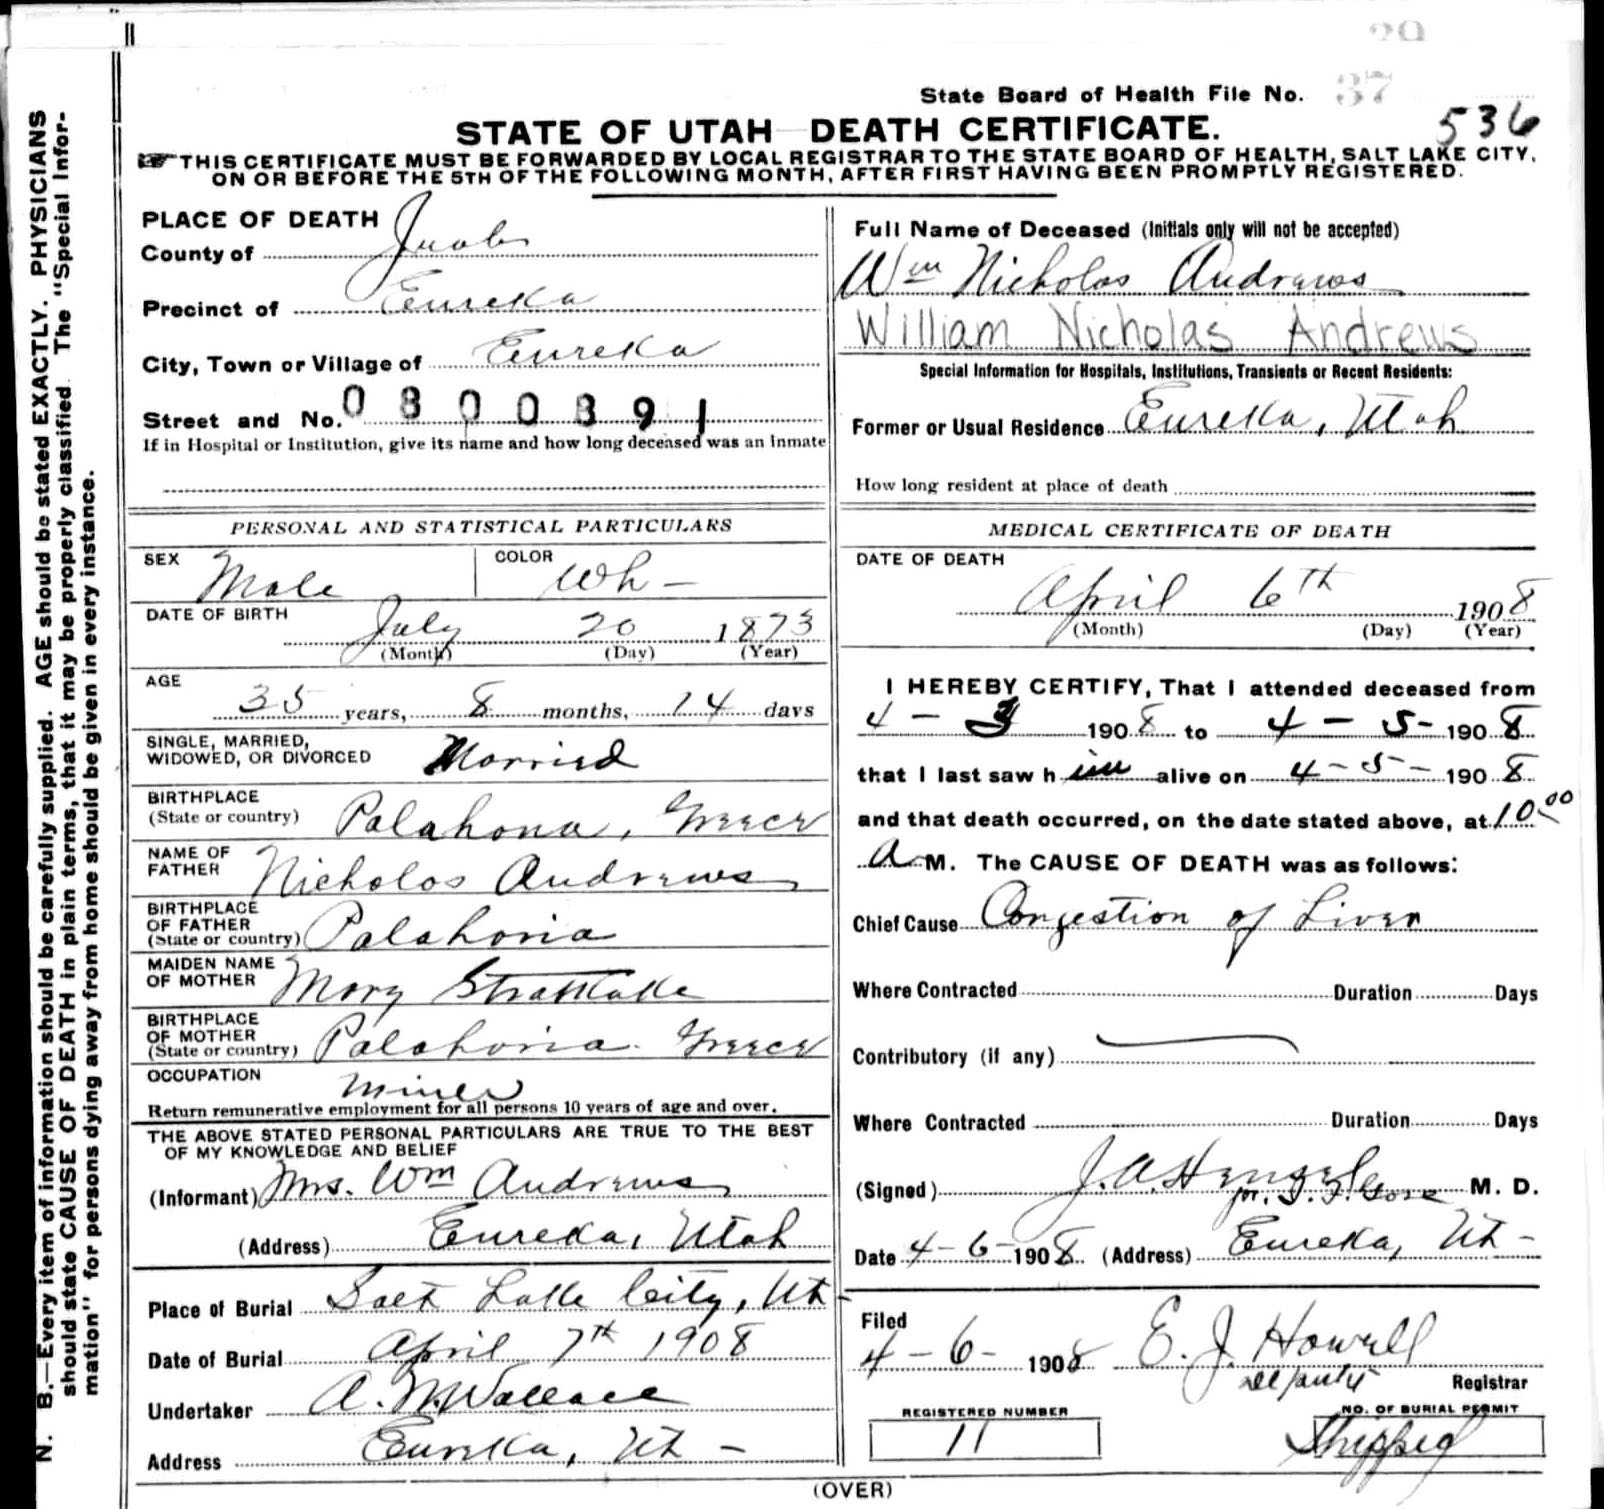 29
State Board of Health File No. 37
536
STATE OF UTAH DEATH CERTIFICATE.
THIS CERTIFICATE MUST BE FORWARDED BY LOCAL REGISTRAR TO THE STATE BOARD OF HEALTH, SALT LAKE CITY,
ON OR BEFORE THE 5TH OF THE FOLLOWING MONTH, AFTER FIRST HAVING BEEN PROMPTLY REGISTERED.
N. B.—Every item of information should be carefully supplied. AGE should be stated EXACTLY. PHYSICIANS
should state CAUSE OF DEATH in plain terms, that it may be properly classified. The "Special Infor-
mation" for persons dying away from home should be given in every instance.
PLACE OF DEATH
County of Juab
Precinct of Eureka
City, Town or Village of Eureka
Street and No. 0800391
If in Hospital or Institution, give its name and how long deceased was an Inmate
PERSONAL AND STATISTICAL PARTICULARS
SEX Male COLOR Wh -
DATE OF BIRTH
July 20 1873
(Month) (Day) (Year)
AGE
35 years, 8 months, 14 days
SINGLE, MARRIED,
WIDOWED, OR DIVORCED Married
BIRTHPLACE
(State or country) Palahona, Greece
NAME OF
FATHER Nicholas Andrews
BIRTHPLACE
OF FATHER
(State or country) Palahoria
MAIDEN NAME
OF MOTHER Mary
BIRTHPLACE
OF MOTHER
(State or country) Palahoria. Greece
OCCUPATION Miner
Return remunerative employment for all persons 10 years of age and over.
THE ABOVE STATED PERSONAL PARTICULARS ARE TRUE TO THE BEST
OF MY KNOWLEDGE AND BELIEF
(Informant) Mrs. Wm Andrews
(Address) Eureka, Utah
Place of Burial Salt Lake City, Ut -
Date of Burial April 7th 1908
Undertaker A. M. Wallace
Address Eureka, Ut -
Full Name of Deceased (Initials only will not be accepted)
Wm Nicholas Andrews
William Nicholas Andrews
Special Information for Hospitals, Institutions, Transients or Recent Residents:
Former or Usual Residence Eureka, Utah
How long resident at place of death
MEDICAL CERTIFICATE OF DEATH
DATE OF DEATH
April 6th 1908
(Month) (Day) (Year)
I HEREBY CERTIFY, That I attended deceased from
4 - 3 1908 to 4 - 5 - 1908
that I last saw him alive on 4 - 5 - 1908
and that death occurred, on the date stated above, at 10 00
A M. The CAUSE OF DEATH was as follows:
Chief Cause Congestion of Liver
Where Contracted Duration Days
Contributory (if any)
Where Contracted Duration Days
(Signed) J. A. M. D.
Date 4-6-1908 (Address) Eureka, Ut -
Filed
4 - 6 - 1908 E. J. Howell
Registrar
REGISTERED NUMBER
11
NO. OF BURIAL PERMIT
Shipped
(OVER)